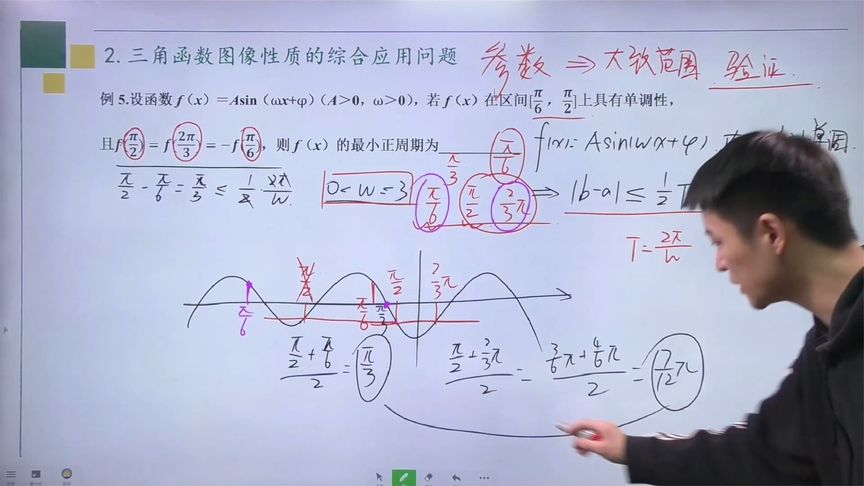 2. 三角函数图像性质的综合应用问题
参数 ⇒ 大致范围 验证
例 5.设函数 f（x）=Asin（ωx+φ）（A>0，ω>0），若 f（x）在区间[π/6，π/2]上具有单调性，
且f(π/2) = f(2π/3) = −f(π/6)，则 f（x）的最小正周期为
π/3 π/6 f(x)= Asin(wx+φ)
π/2 - π/6 = π/3 ≤ 1/2 · 2π/w 0< w = 3 π/6 π/2 2/3π ⇒ |b-a| ≤ 1/2 T
T = 2π/w
π/2 2/3π
π/6 π/6 π/3
(π/2 + π/6)/2 = π/3 (π/2 + 2/3π)/2 = (3/6π + 4/6π)/2 = 7/12π